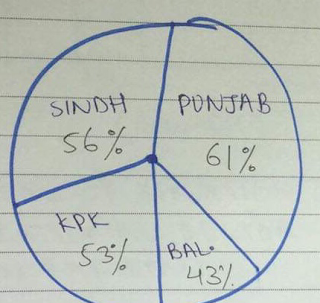 SINDH
56%
PUNJAB
61%
KPK
53%
BAL.
43%